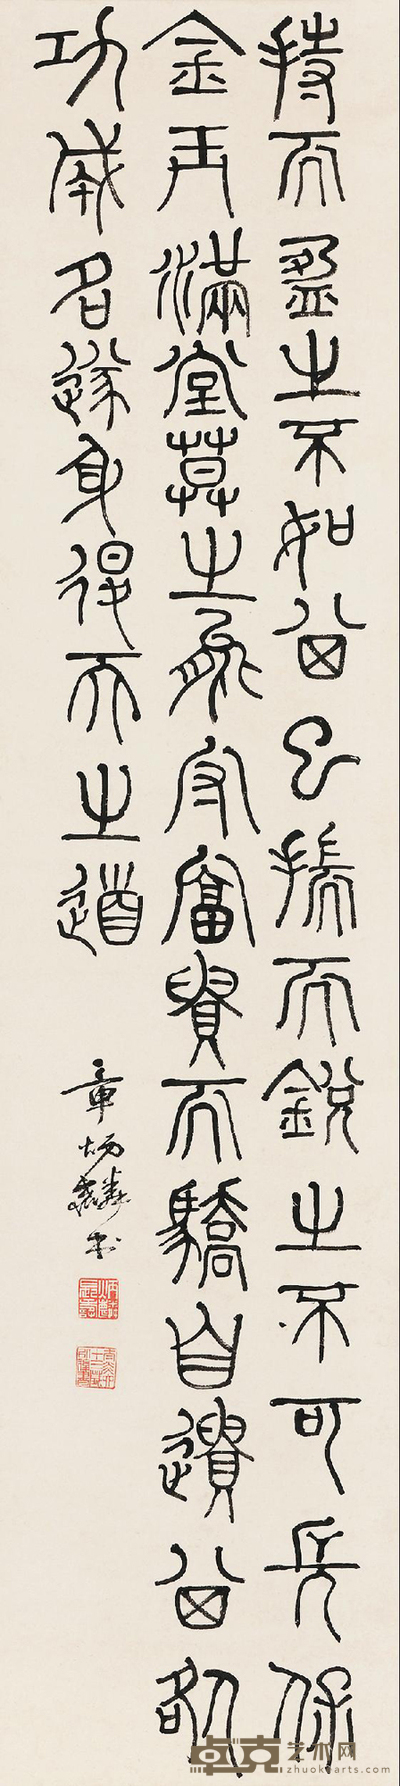 持而盈之不如其已揣而銳之不可長保
金玉滿堂莫之能守富貴而驕自遺其咎
功成名遂身退天之道
章炳麟書
卓克艺术网
zhuokearts.com